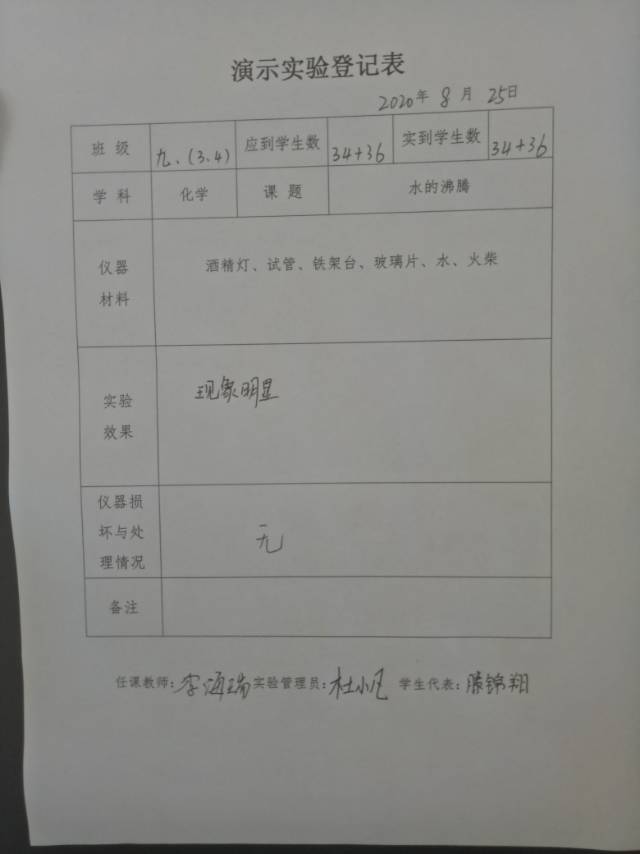 演示实验登记表
2020年 8 月 25日
班 级 九、(3、4) 应到学生数 34+36 实到学生数 34+36
学 科 化学 课 题 水的沸腾
仪器
材料
酒精灯、试管、铁架台、玻璃片、水、火柴
实验
效果
现象明显
仪器损
坏与处
理情况
无
备注
任课教师:李海瑞 实验管理员:杜小凡 学生代表:滕锦翔